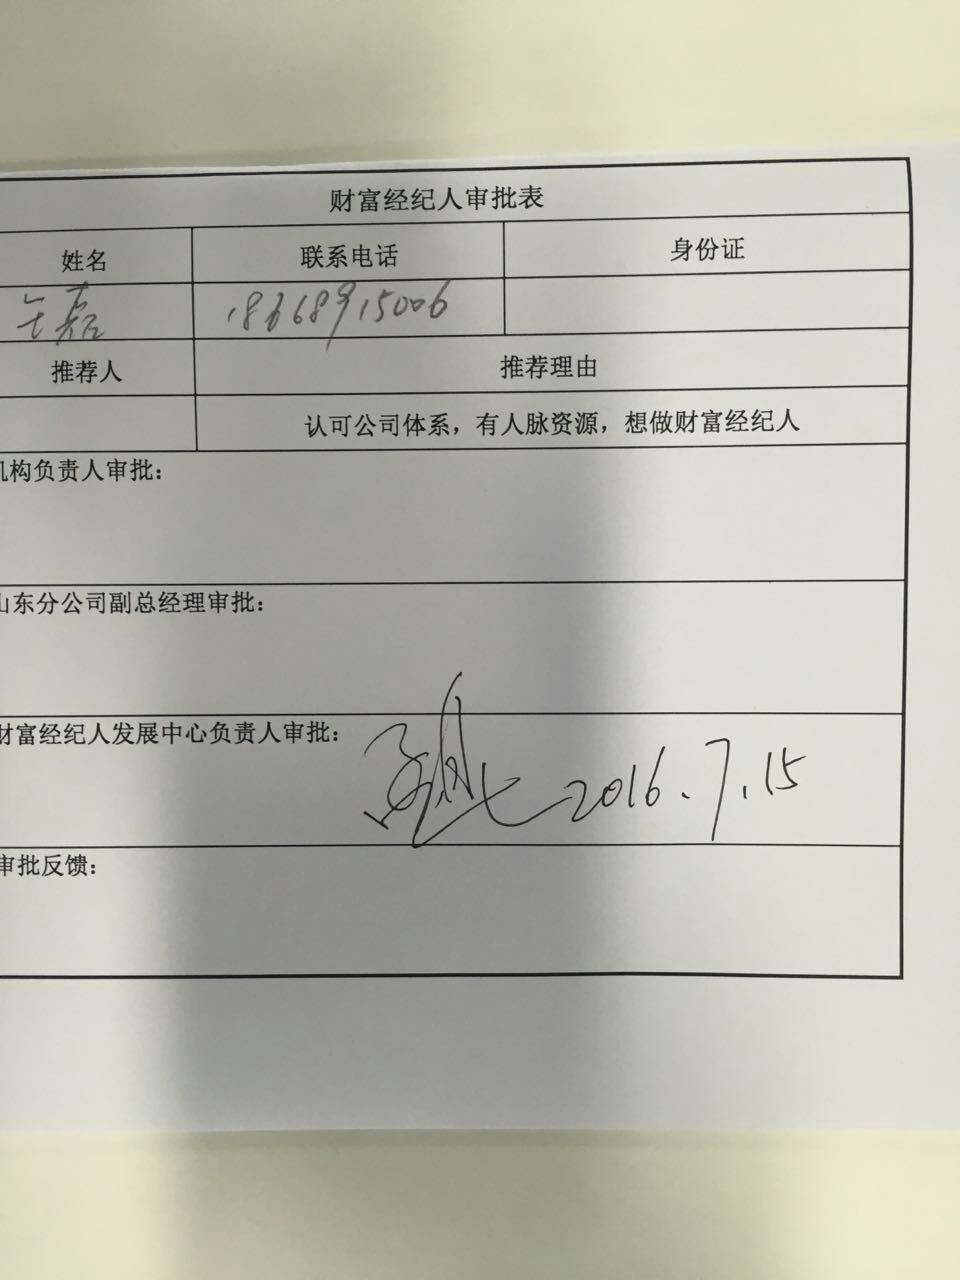 财富经纪人审批表
姓名 联系电话 身份证
18668915006
推荐人 推荐理由
认可公司体系，有人脉资源，想做财富经纪人
机构负责人审批：
山东分公司副总经理审批：
财富经纪人发展中心负责人审批：
2016.7.15
审批反馈：